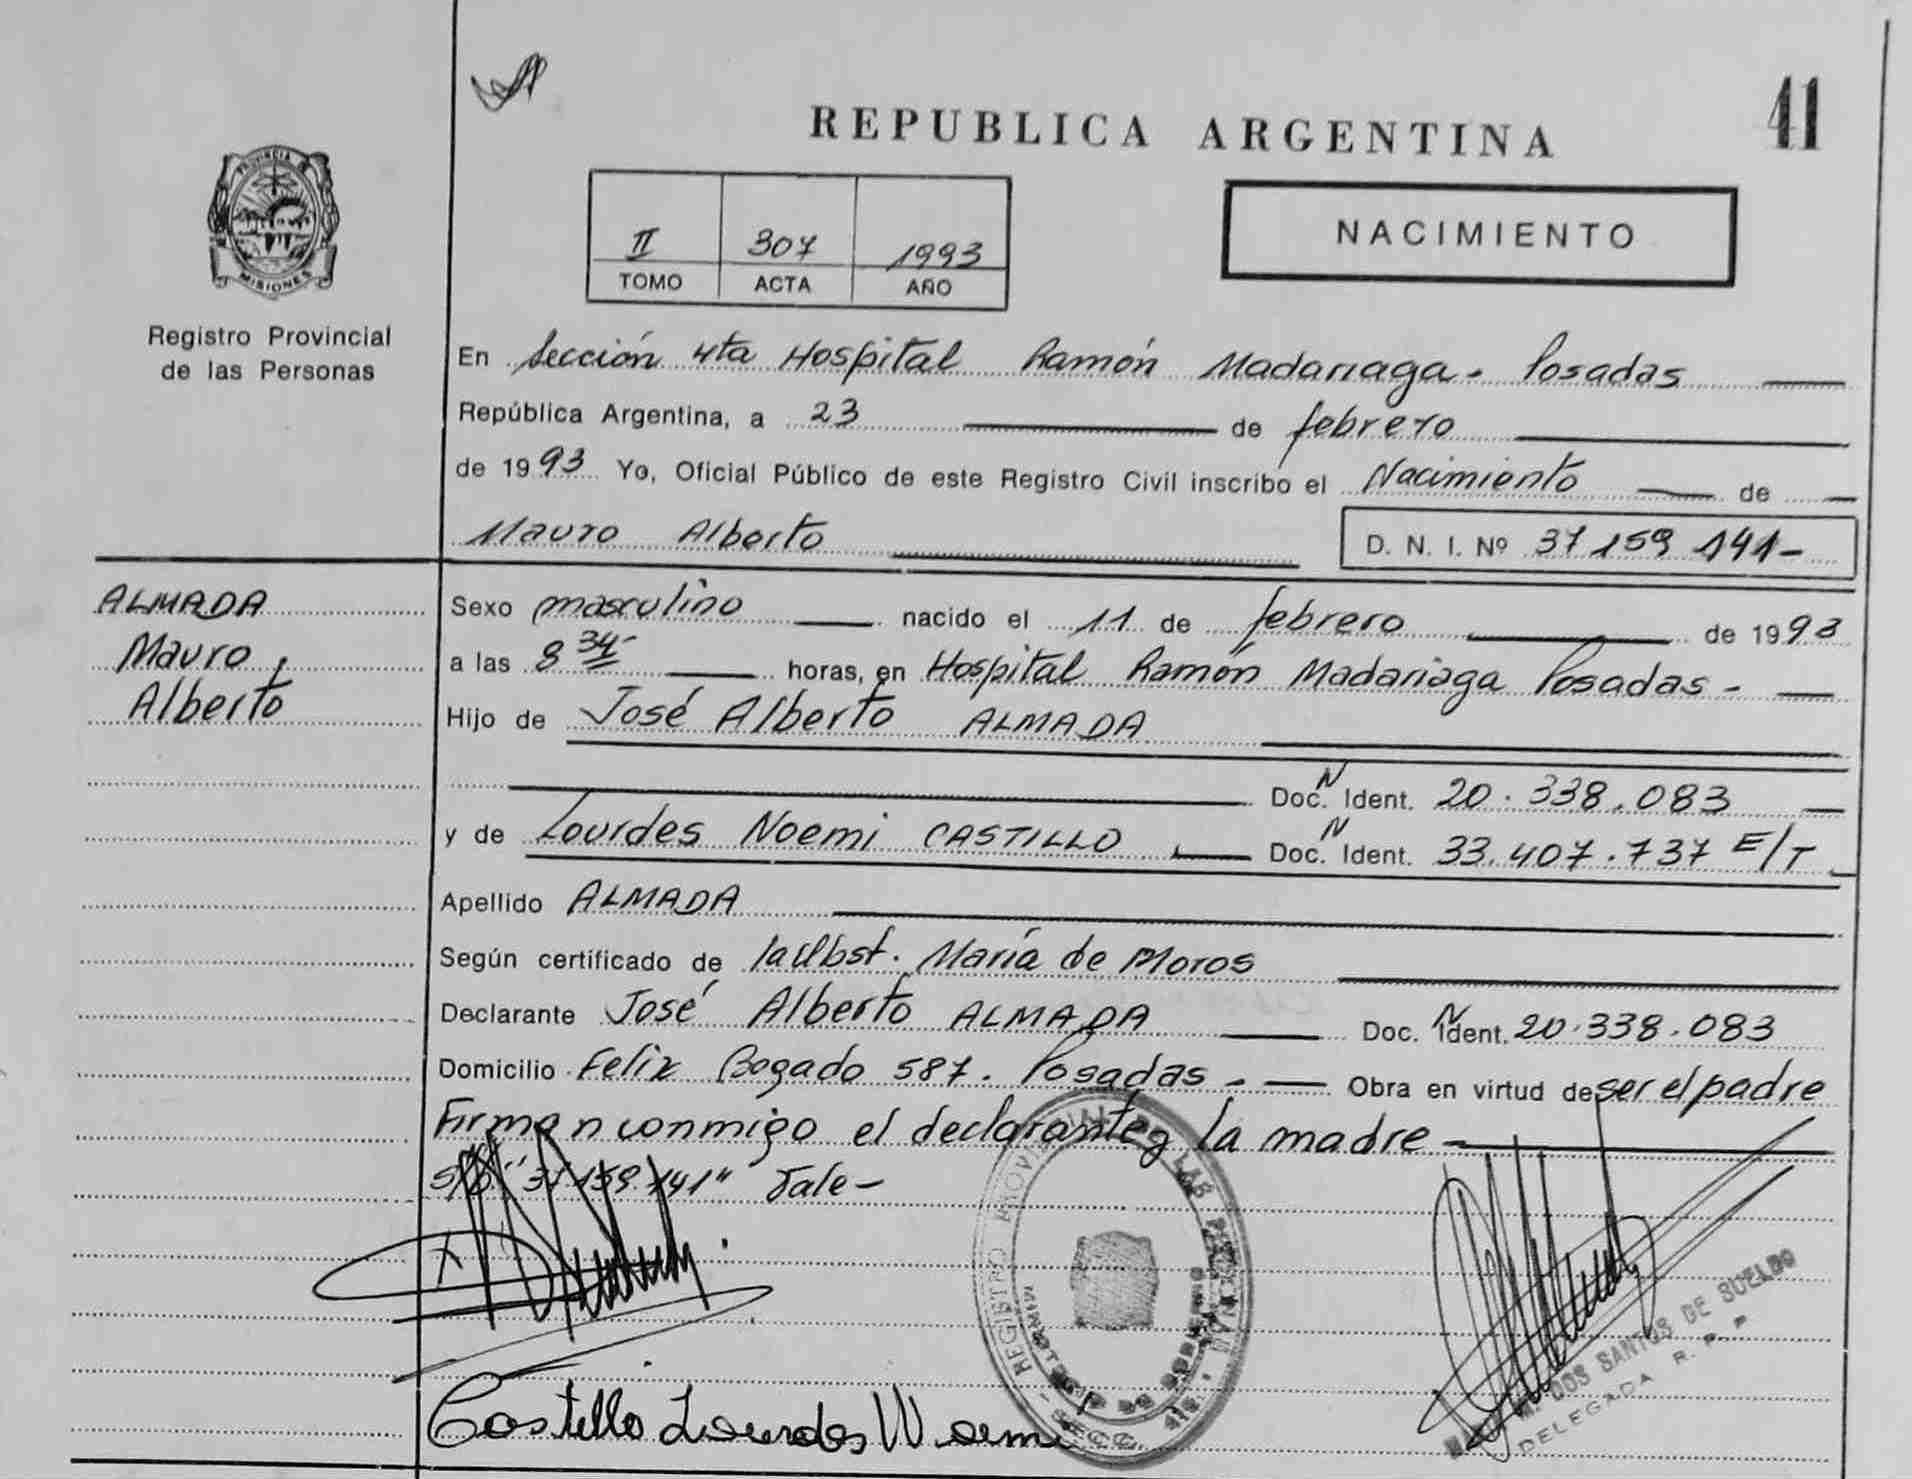 41
REPUBLICA ARGENTINA
PROVINCIA DE
MISIONES
Registro Provincial
de las Personas
II 307 1993
TOMO ACTA AÑO
NACIMIENTO
En Sección 4ta Hospital Ramón Madariaga - Posadas
República Argentina, a 23 de febrero
de 1993 Yo, Oficial Público de este Registro Civil inscribo el Nacimiento de
Mauro Alberto D. N. I. Nº 37 159 141-
ALMADA
Mauro
Alberto
Sexo masculino nacido el 11 de febrero de 1993
a las 8 34- horas, en Hospital Ramón Madariaga Posadas -
Hijo de José Alberto ALMADA
Doc. N Ident. 20.338.083
y de Lourdes Noemi CASTILLO Doc. N Ident. 33.407.737 E/T
Apellido ALMADA
Según certificado de la Obst. María de Moros
Declarante José Alberto ALMADA Doc. N Ident. 20.338.083
Domicilio Felix Bogado 587. Posadas - Obra en virtud de ser el padre
Firman conmigo el declarante y la madre
"37 159 141" Vale -
REGISTRO PROVINCIAL DE LAS
Castillo Lourdes Noemi
DOS SANTOS DE SUELDO
DELEGADA R. P. P.